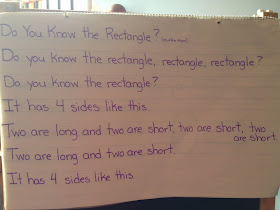 Do You Know the Rectangle?
Do you know the rectangle, rectangle, rectangle?
Do you know the rectangle?
It has 4 sides like this.
Two are long and two are short, two are short, two
are short.
Two are long and two are short.
It has 4 sides like this